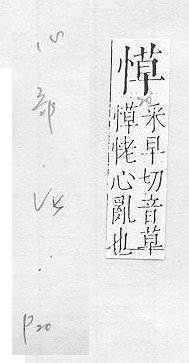 愺
采早切音草
愺恅心亂也
心部.
P20